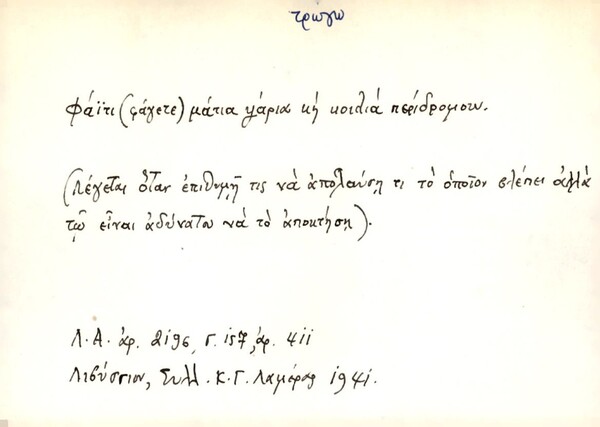 τρώγω
Φάϊτι (φάγετε) μάτια ψάρια κὴ κοιλιά περίδρομου.
(Λέγεται ὅταν ἐπιθυμῇ τις νὰ ἀπολαύσῃ τι τὸ ὁποῖον βλέπει ἀλλὰ
τῷ εἶναι ἀδύνατον νὰ τὸ ἀποκτήσῃ).
Λ.Α. ἀρ. 2196, Γ. 157, ἀρ. 411
Λιβύσσιον, Συλλ. Κ.Γ. Λαμέρας 1941.